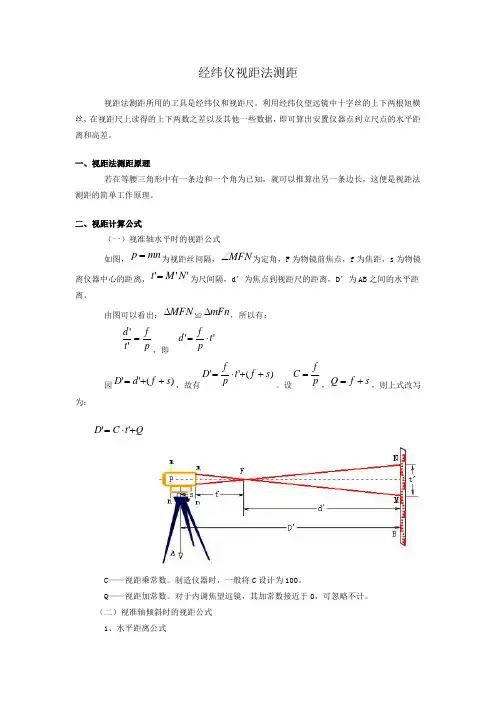 经纬仪视距法测距
视距法测距所用的工具是经纬仪和视距尺。利用经纬仪望远镜中十字丝的上下两根短横
丝,在视距尺上读得的上下两数之差以及其他一些数据,即可算出安置仪器点到立尺点的水平距
离和高差。
一、视距法测距原理
若在等腰三角形中有一条边和一个角为已知,就可以推算出另一条边长,这便是视距法
测距的简单工作原理。
二、视距计算公式
(一)视准轴水平时的视距公式
如图,p = mn为视距丝间隔,∠MFN为定角,F为物镜前焦点,f为焦距,s为物镜
离仪器中心的距离,t'= M'N'为尺间隔,d′为焦点到视距尺的距离,D′为AB之间的水平距
离。
由图可以看出:ΔMFN≌ΔmFn,所以有:
d'/t' = f/p,即 d'= f/p · t'
因D'= d'+(f + s),故有D'= f/p · t'+(f + s)。设C = f/p,Q = f + s,则上式改写
为:
D'= C · t'+Q
m
m
F
N
P
t′
n
s
n
f
M
d′
D′
B
A
C——视距乘常数。制造仪器时,一般将C设计为100。
Q——视距加常数。对于内调焦望远镜,其加常数接近于0,可忽略不计。
(二)视准轴倾斜时的视距公式
1、水平距离公式